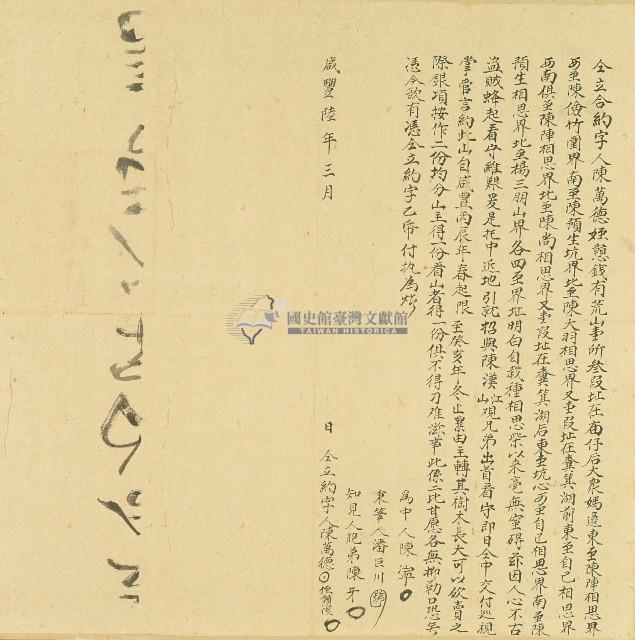 仝立合約字人陳萬德姪戇錢有荒山壹所叁段址在庙仔后大眾媽邊東至陳陣相思界
西至陳儉竹圍界南至陳預生坑界北至陳大羽相思界又壹段址在糞箕湖前東至自己相思界
西南俱至陳陣相思界北至陳尚相思界又壹段址在糞箕湖后東至坑心西至自己相思界南至陳
預生相思界北至楊三朋山界各四至界址明白自栽種相思柴以來毫無窒碍茲因人心不古
盜賊蜂起看守維艱爰是托中近地引就招與陳漢江山觀兄弟出首看守即日仝中交付巡視
掌管言約此山自咸豐丙辰年春起限至癸亥年冬止業由主轉其樹木長大可以砍賣之
際銀項按作二份均分山主得一份看山者得一份俱不得刁难滋事此係二比甘愿各無抑勒恐口無
憑今欲有憑仝立約字乙帋付执為炤
為中人陳寧
秉筆人潘巨川
知見人胞弟陳牙
咸豐陸年三月 日仝立約字人陳萬德
國史館臺灣文獻館
TAIWAN HISTORICA